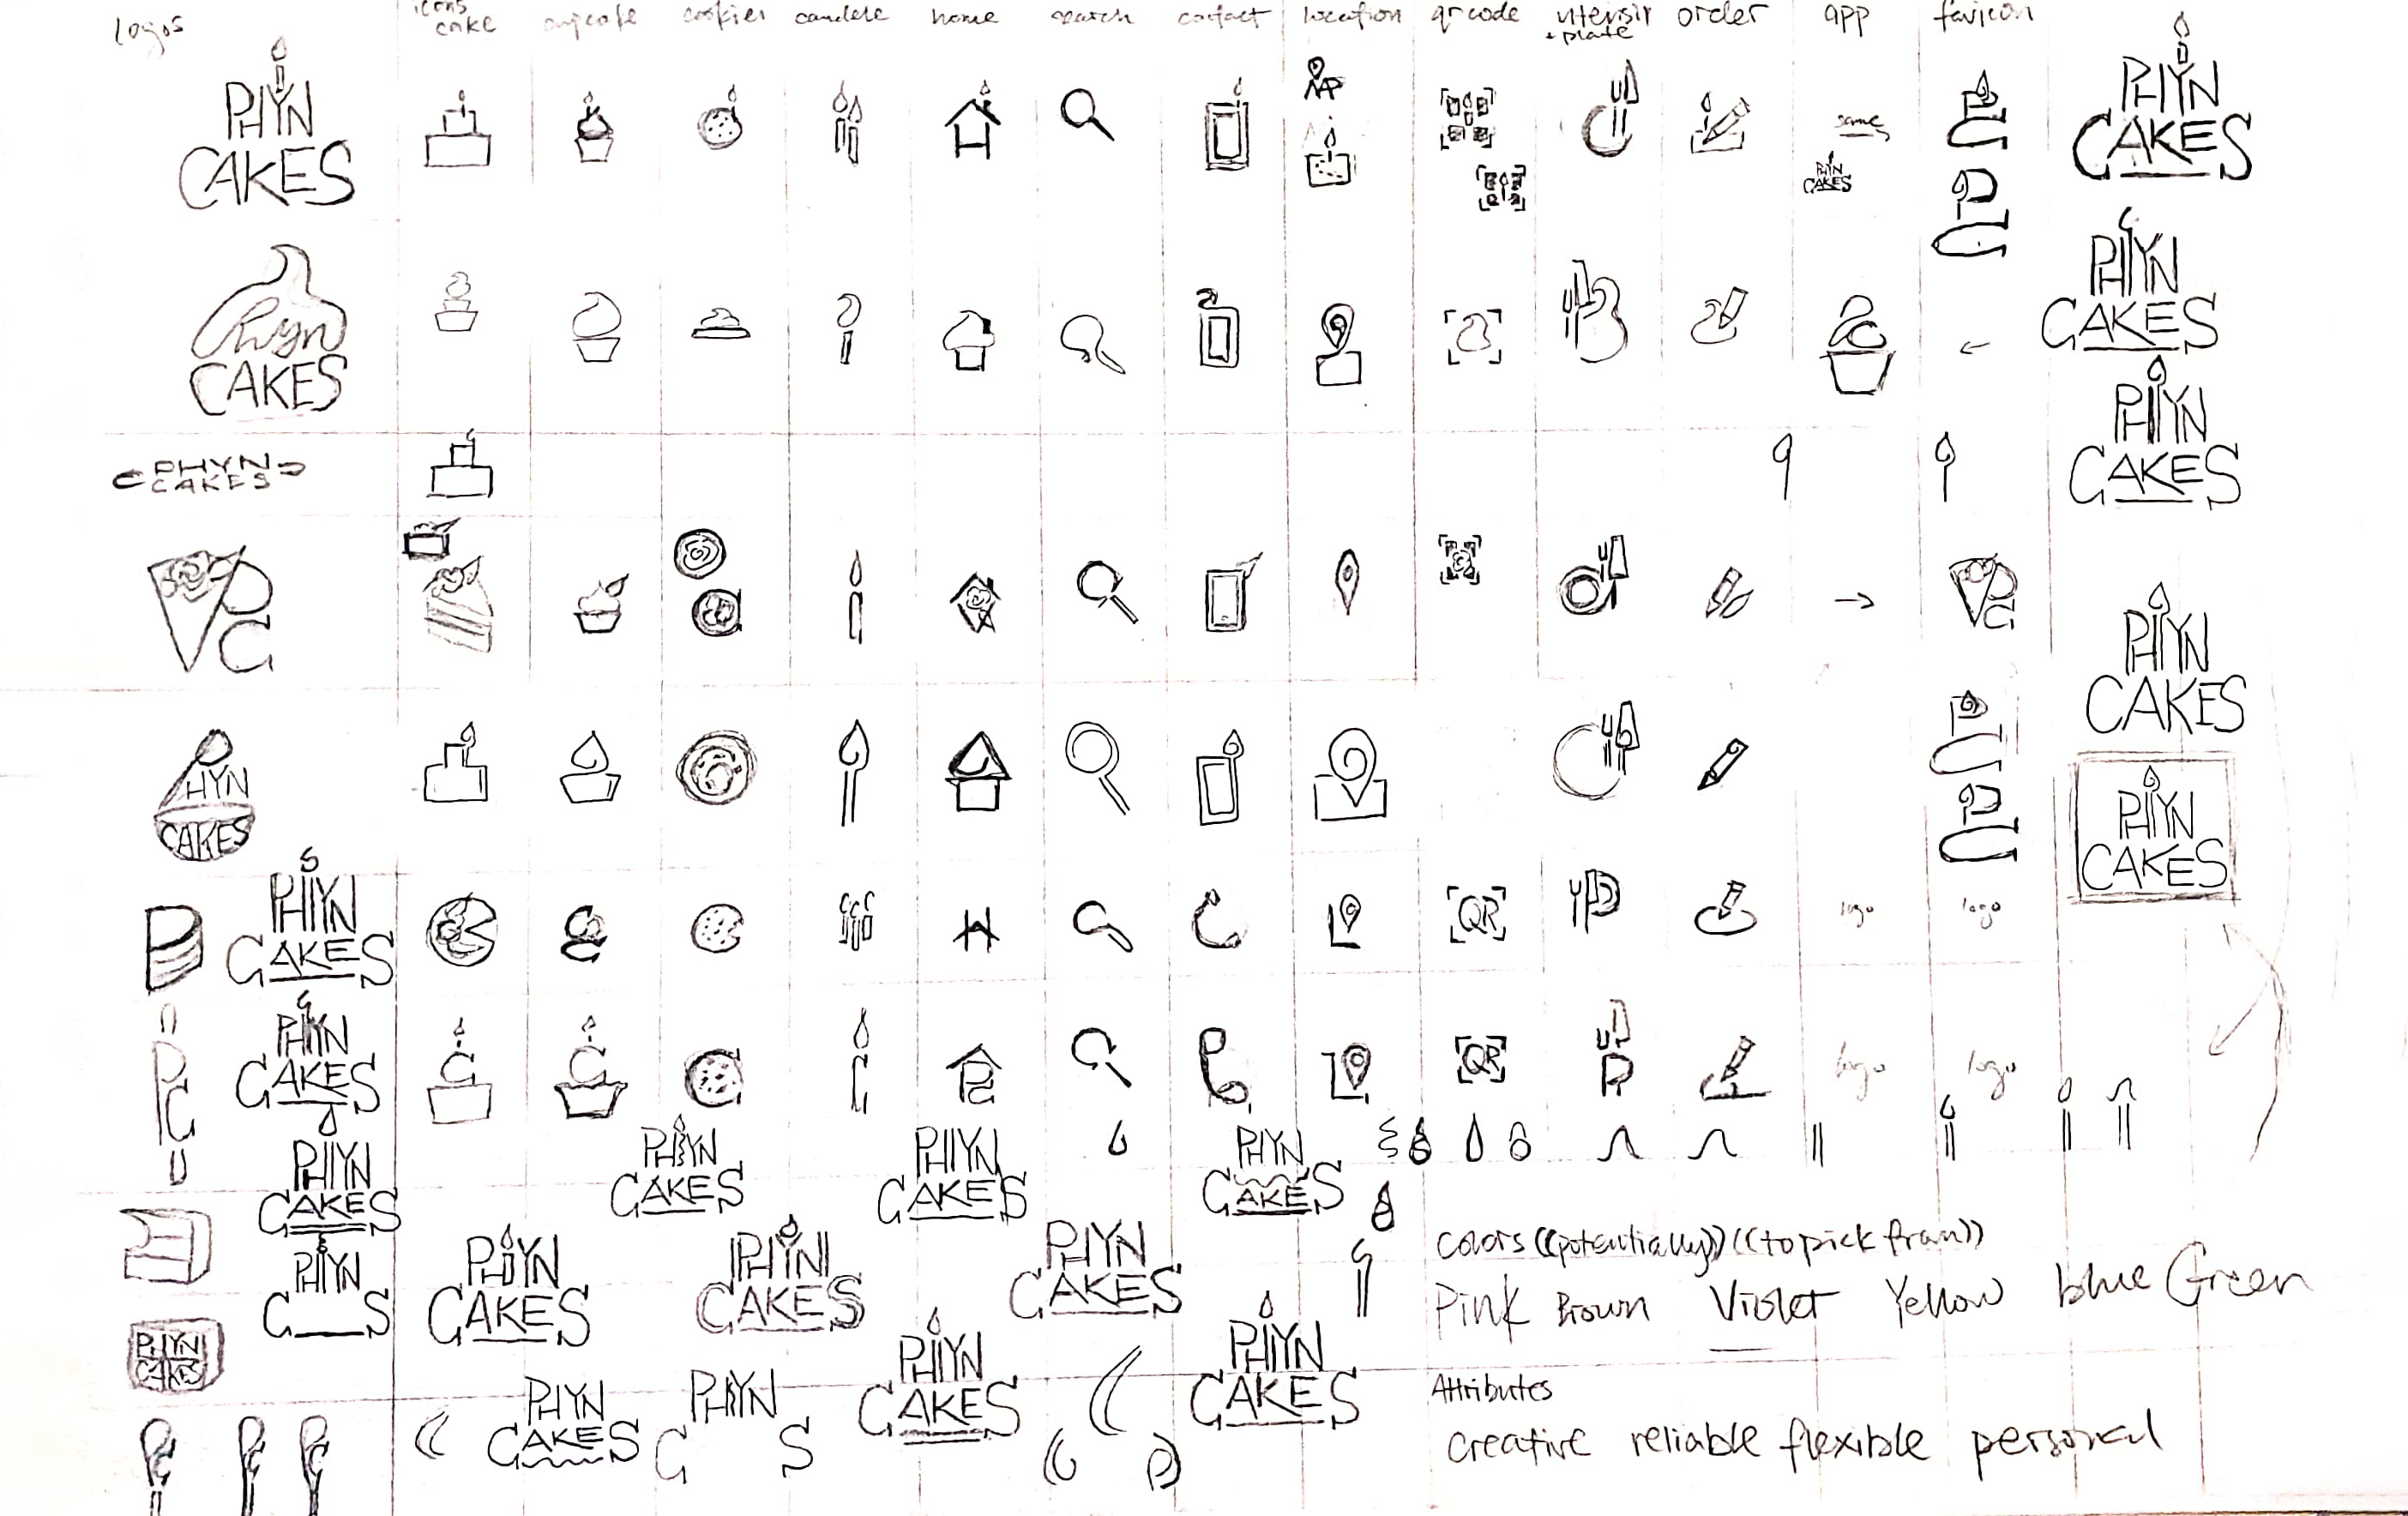 logos
icons
cake
cupcake
cookies
candle
home
search
contact
location
qr code
utensil
+ plate
order
app
favicon
PHYN
CAKES
same
PHYN
CAKES
PHYN
CAKES
Phyn
CAKES
PHYN
CAKES
PHYN
CAKES
PHYN
CAKES
PC
PC
PHYN
CAKES
HYN
CAKES
PHYN
CAKES
PHYN
CAKES
QR
logo
logo
PHYN
CAKES
QR
logo
logo
PC
PHYN
CAKES
PHYN
CAKES
PHYN
CAKES
PHYN
CAKES
PHYN
C S
PHYN
CAKES
PHYN
CAKES
PHYN
CAKES
Colors ((potentially)) ((to pick from))
Pink Brown Violet Yellow blue Green
PHYN
CAKES
PHYN
CAKES
PHYN
CAKES
PHYN
CAKES
PHYN
C S
Attributes
creative reliable flexible personal